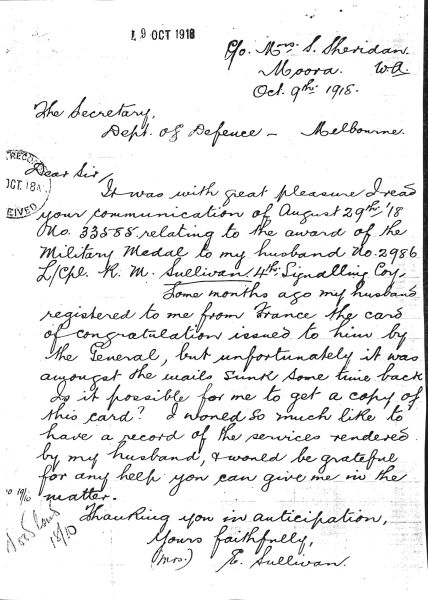 19 OCT 1918
C/o. Mrs. S. Sheridan.
Moora. WA
Oct. 9th 1918.
The Secretary,
Dept. of Defence – Melbourne.
Dear Sir,
It was with great pleasure I read
your communication of August 29th '18
No. 33585 relating to the award of the
Military Medal to my husband No. 2986
L/Cpl. K. M. Sullivan 4th Signalling Coy.
Some months ago my husband
registered to me from France the card
of congratulation issued to him by
the General, but unfortunately it was
amongst the mails sunk some time back
Is it possible for me to get a copy of
this card? I would so much like to
have a record of the services rendered
by my husband, & would be grateful
for any help you can give me in the
matter.
Thanking you in anticipation,
Yours faithfully,
(Mrs.) E. Sullivan.
OCT. 18
19/10
18/10